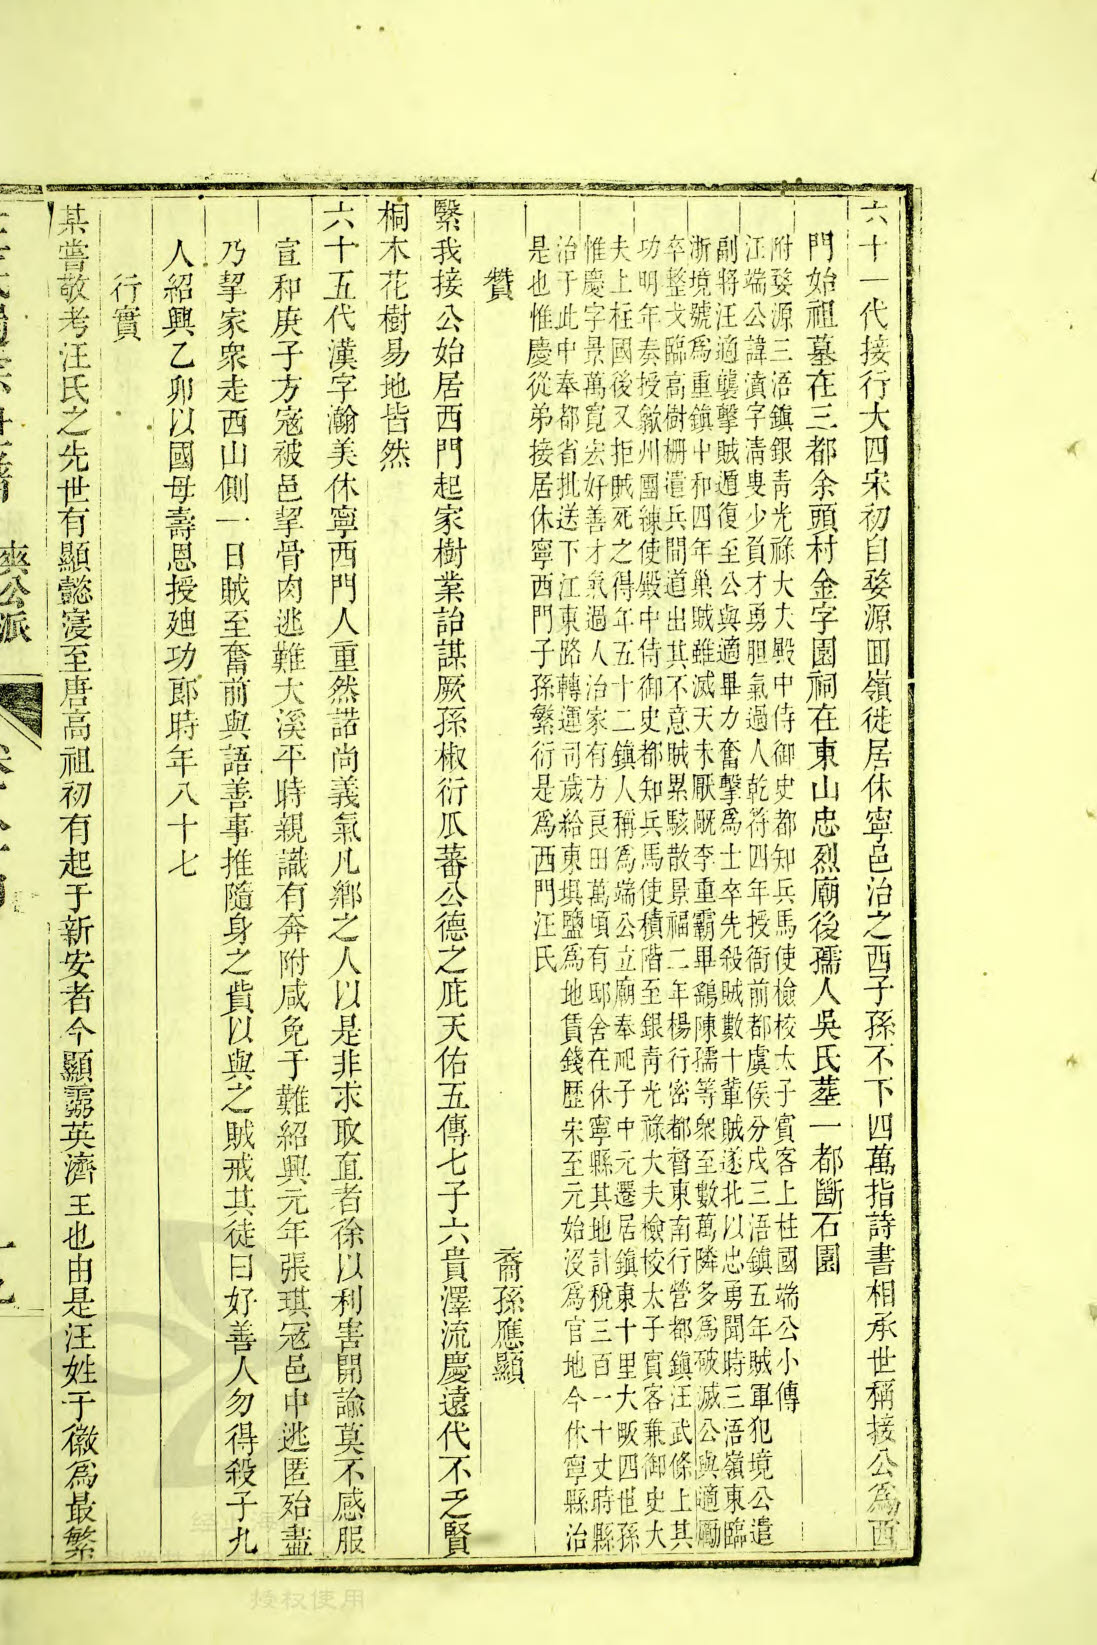 六十一代接行大四宋初自婺源回嶺徙居休寧邑治之西子孫不下四萬指詩書相承世稱接公爲西
門始祖墓在三都余頭村金字園祠在東山忠烈廟後孺人吳氏塟一都斷石園
附婺源三浯鎮銀靑光祿大夫殿中侍御史都知兵馬使檢校太子賓客上柱國端公小傳
汪端公諱濆字淸叟少負才勇胆氣過人乾符四年授衙前都虞侯分戍三浯鎮五年賊軍犯境公遣
副將汪適襲擊賊遁復至公與適畢力奮擊爲士卒先殺賊數十輩賊遂北以忠勇聞時三浯嶺東臨
浙境號爲重鎮中和四年巢賊雖滅天未厭厩李重霸畢鷂陳孺等衆至數萬隣多爲破滅公與適勵
卒整戈臨高樹柵遣兵間道出其不意賊累駭散景福二年楊行密都督東南行營都鎮汪武條上其
功明年奏授歙州團練使殿中侍御史都知兵馬使積階至銀靑光祿大夫檢校太子賓客兼御史大
夫上柱國後又拒賊死之得年五十二鎮人稱爲端公立廟奉祀子中元遷居鎮東十里大畈四世孫
惟慶字景萬寬宏好善才氣過人治家有方良田萬頃有邸舍在休寧縣其地計稅三百一十丈時縣
治于此中奉都省批送下江東路轉運司歲給東埧鹽爲地賃錢歷宋至元始沒爲官地今休寧縣治
是也惟慶從弟接居休寧西門子孫繁衍是爲西門汪氏
贊
裔孫應顯
繄我接公始居西門起家樹業詒謀厥孫椒衍瓜蕃公德之庇天佑五傳七子六貴澤流慶遠代不乏賢
桐木花樹易地皆然
六十五代漢字瀚美休寧西門人重然諾尚義氣凡鄉之人以是非求取直者徐以利害開諭莫不感服
宣和庚子方寇被邑挈骨肉逃難大溪平時親識有奔附咸免于難紹興元年張琪寇邑中逃匿殆盡
乃挈家衆走西山側一日賊至奮前與語善事推隨身之貲以與之賊戒其徒曰好善人勿得殺子九
人紹興乙卯以國母壽恩授廸功郎時年八十七
行實
某嘗敬考汪氏之先世有顯懿寖至唐高祖初有起于新安者今顯靈英濟王也由是汪姓于徽爲最繁
濟公派
授权使用